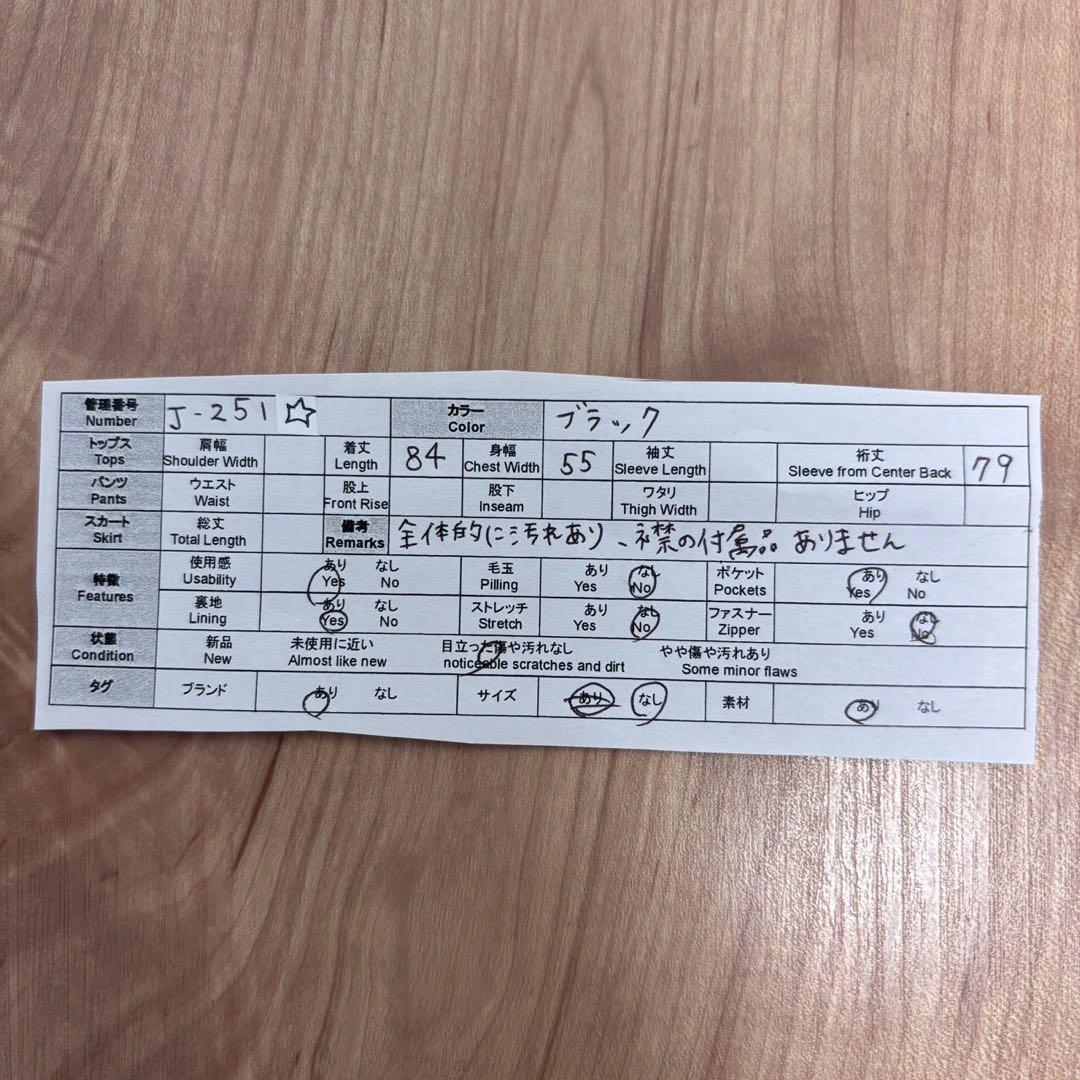 管理番号 Number J-251 ☆ カラー Color ブラック
トップス Tops 肩幅 Shoulder Width 着丈 Length 84 身幅 Chest Width 55 袖丈 Sleeve Length 裄丈 Sleeve from Center Back 79
パンツ Pants ウエスト Waist 股上 Front Rise 股下 Inseam ワタリ Thigh Width ヒップ Hip
スカート Skirt 総丈 Total Length 備考 Remarks 全体的に汚れあり、襟の付属品ありません
特徴 Features 使用感 Usability あり Yes なし No 毛玉 Pilling あり Yes なし No ポケット Pockets あり Yes なし No
裏地 Lining あり Yes なし No ストレッチ Stretch あり Yes なし No ファスナー Zipper あり Yes なし No
状態 Condition 新品 New 未使用に近い Almost like new 目立った傷や汚れなし noticeable scratches and dirt やや傷や汚れあり Some minor flaws
タグ ブランド あり なし サイズ あり なし 素材 あり なし